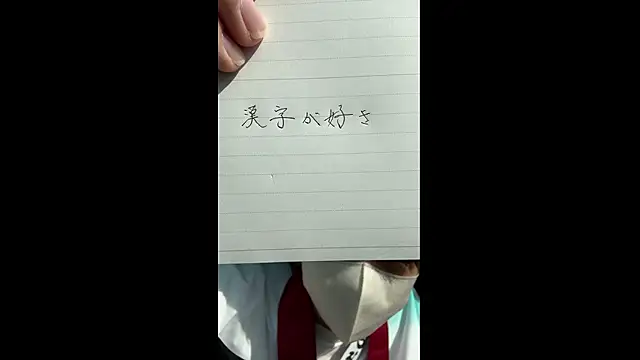 漢字が好き